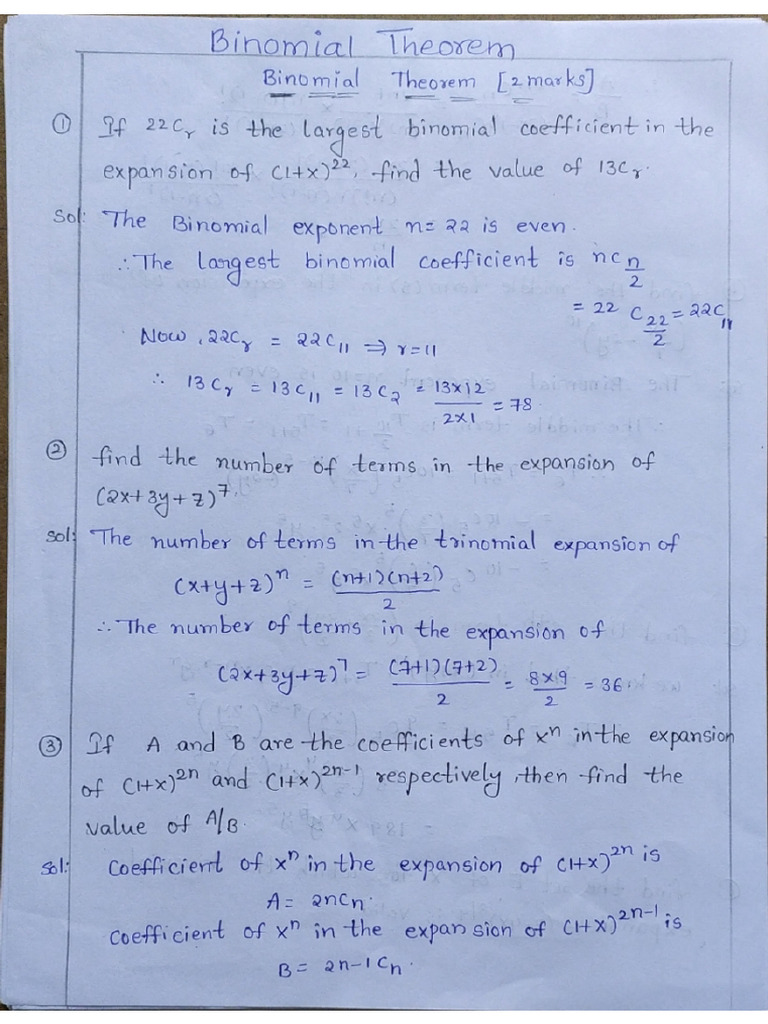 Binomial Theorem
Binomial Theorem [2 marks]
① If 22Cᵣ is the largest binomial coefficient in the
expansion of (1+x)²², find the value of 13Cᵣ.
Sol: The Binomial exponent n= 22 is even.
∴ The largest binomial coefficient is nC n/2
= 22 C 22/2 = 22C₁₁
Now, 22Cᵣ = 22C₁₁ ⇒ r=11
∴ 13Cᵣ = 13C₁₁ = 13C₂ = 13x12/2x1 = 78.
② find the number of terms in the expansion of
(2x+3y+z)⁷.
Sol: The number of terms in the trinomial expansion of
(x+y+z)ⁿ = (n+1)(n+2)/2
∴ The number of terms in the expansion of
(2x+3y+z)⁷ = (7+1)(7+2)/2 = 8x9/2 = 36.
③ If A and B are the coefficients of xⁿ in the expansion
of (1+x)²ⁿ and (1+x)²ⁿ⁻¹ respectively, then find the
value of A/B.
Sol: Coefficient of xⁿ in the expansion of (1+x)²ⁿ is
A= 2nCₙ.
Coefficient of xⁿ in the expansion of (1+x)²ⁿ⁻¹ is
B= 2n-1Cₙ.